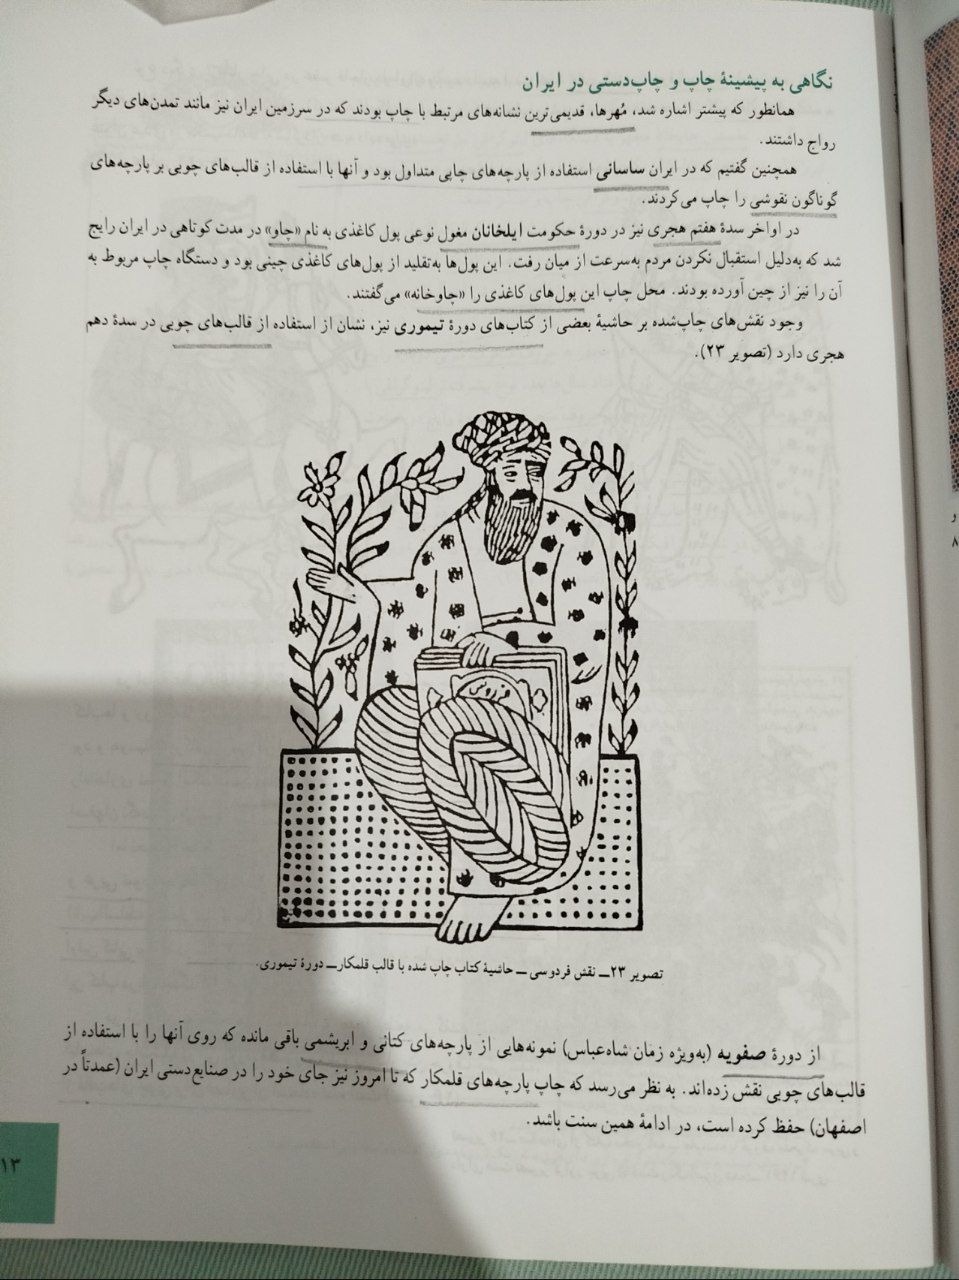 نگاهی به پیشینهٔ چاپ و چاپ‌دستی در ایران
همانطور که پیشتر اشاره شد، مُهرها، قدیمی‌ترین نشانه‌های مرتبط با چاپ بودند که در سرزمین ایران نیز مانند تمدن‌های دیگر
رواج داشتند.
همچنین گفتیم که در ایران ساسانی استفاده از پارچه‌های چاپی متداول بود و آنها با استفاده از قالب‌های چوبی بر پارچه‌های
گوناگون نقوشی را چاپ می‌کردند.
در اواخر سدهٔ هفتم هجری نیز در دورهٔ حکومت ایلخانان مغول نوعی پول کاغذی به نام «چاو» در مدت کوتاهی در ایران رایج
شد که به‌دلیل استقبال نکردن مردم به‌سرعت از میان رفت. این پول‌ها به‌تقلید از پول‌های کاغذی چینی بود و دستگاه چاپ مربوط به
آن را نیز از چین آورده بودند. محل چاپ این پول‌های کاغذی را «چاوخانه» می‌گفتند.
وجود نقش‌های چاپ‌شده بر حاشیهٔ بعضی از کتاب‌های دورهٔ تیموری نیز، نشان از استفاده از قالب‌های چوبی در سدهٔ دهم
هجری دارد (تصویر ۲۳).
فردوسی
تصویر ۲۳ــ نقش فردوسی ــ حاشیهٔ کتاب چاپ شده با قالب قلمکار ــ دورهٔ تیموری.
از دورهٔ صفویه (به‌ویژه زمان شاه‌عباس) نمونه‌هایی از پارچه‌های کتانی و ابریشمی باقی مانده که روی آنها را با استفاده از
قالب‌های چوبی نقش زده‌اند. به نظر می‌رسد که چاپ پارچه‌های قلمکار که تا امروز نیز جای خود را در صنایع‌دستی ایران (عمدتاً در
اصفهان) حفظ کرده است، در ادامهٔ همین سنت باشد.
۱۳